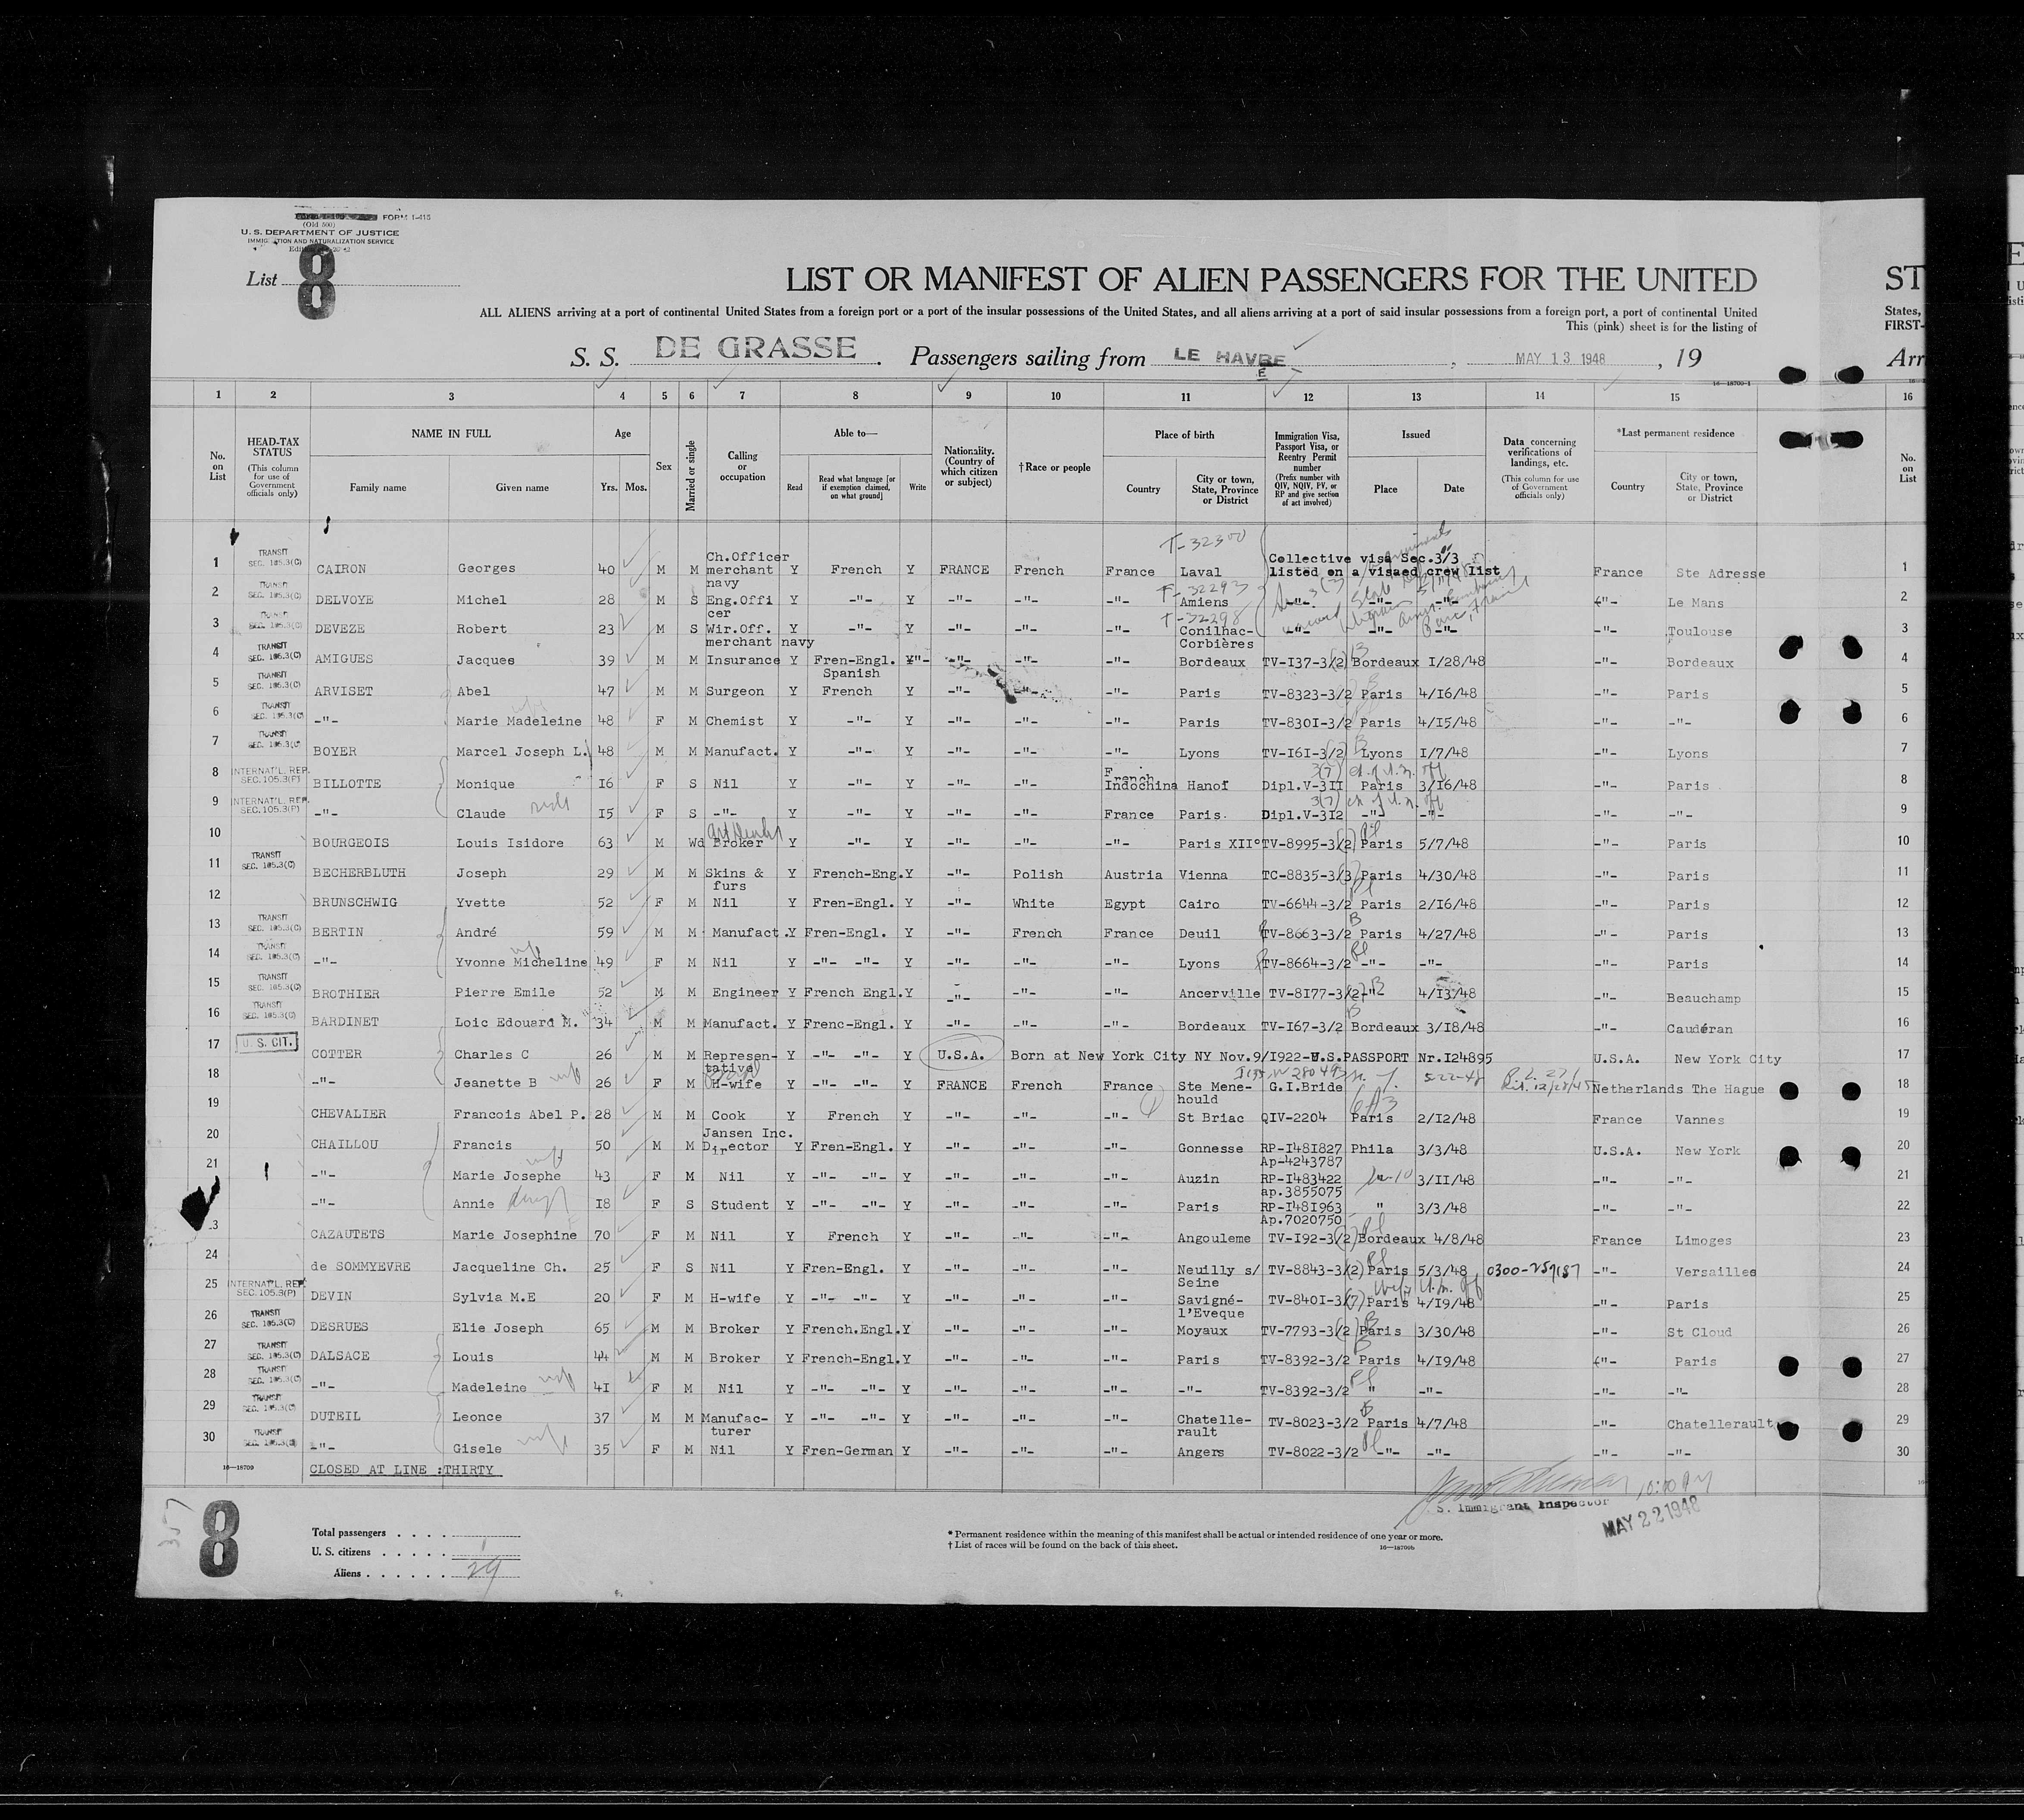 FORM I-415
(Old 500)
U. S. DEPARTMENT OF JUSTICE
IMMIGRATION AND NATURALIZATION SERVICE
List 8
LIST OR MANIFEST OF ALIEN PASSENGERS FOR THE UNITED
ST
ALL ALIENS arriving at a port of continental United States from a foreign port or a port of the insular possessions of the United States, and all aliens arriving at a port of said insular possessions from a foreign port, a port of continental United
States,
This (pink) sheet is for the listing of
FIRST-
S. S. DE GRASSE. Passengers sailing from LE HAVRE, MAY 13 1948, 19
Arr
16—18709-1
1 2 3 4 5 6 7 8 9 10 11 12 13 14 15 16
No. on List
HEAD-TAX STATUS (This column for use of Government officials only)
NAME IN FULL Family name Given name
Age Yrs. Mos.
Sex
Married or single
Calling or occupation
Able to— Read Read what language [or if exemption claimed, on what ground] Write
Nationality. (Country of which citizen or subject)
†Race or people
Place of birth Country City or town, State, Province or District
Immigration Visa, Passport Visa, or Reentry Permit number (Prefix number with QIV, NQIV, PV, or RP and give section of act involved)
Issued Place Date
Data concerning verifications of landings, etc. (This column for use of Government officials only)
*Last permanent residence Country City or town, State, Province or District
No. on List
T-32300
1 TRANSIT SEC. 105.3(C) CAIRON Georges 40 M M Ch.Officer merchant navy Y French Y FRANCE French France Laval Collective visa Sec.3/3 listed on a visaed crew list France Ste Adresse 1
T-32293
2 TRANSIT SEC. 105.3(C) DELVOYE Michel 28 M S Eng.Offi cer Y -"- Y -"- -"- -"- Amiens -"- -"- -"- -"- Le Mans 2
T-32298
3 TRANSIT SEC. 105.3(C) DEVEZE Robert 23 M S Wir.Off. merchant navy Y -"- Y -"- -"- -"- Conilhac-Corbières -"- -"- -"- -"- Toulouse 3
4 TRANSIT SEC. 105.3(C) AMIGUES Jacques 39 M M Insurance Y Fren-Engl. Spanish Y"- -"- -"- -"- Bordeaux TV-I37-3/2 Bordeaux I/28/48 -"- Bordeaux 4
5 TRANSIT SEC. 105.3(C) ARVISET Abel 47 M M Surgeon Y French Y -"- -"- -"- Paris TV-8323-3/2 Paris 4/I6/48 -"- Paris 5
6 TRANSIT SEC. 105.3(C) -"- Marie Madeleine 48 F M Chemist Y -"- Y -"- -"- -"- Paris TV-830I-3/2 Paris 4/I5/48 -"- -"- 6
7 TRANSIT SEC. 105.3(C) BOYER Marcel Joseph L. 48 M M Manufact. Y -"- Y -"- -"- -"- Lyons TV-I6I-3/2 Lyons I/7/48 -"- Lyons 7
8 INTERNAT'L. REP. SEC.105.3(F) BILLOTTE Monique I6 F S Nil Y -"- Y -"- -"- French Indochina Hanof Dipl.V-3II Paris 3/I6/48 -"- Paris 8
9 INTERNAT'L. REP. SEC.105.3(F) -"- Claude I5 F S -"- Y -"- Y -"- -"- France Paris. Dipl.V-3I2 -"- -"- -"- -"- 9
10 BOURGEOIS Louis Isidore 63 M Wd Art Dealer Broker Y -"- Y -"- -"- -"- Paris XII° TV-8995-3/2 Paris 5/7/48 -"- Paris 10
11 TRANSIT SEC. 105.3(C) BECHERBLUTH Joseph 29 M M Skins & furs Y French-Eng. Y -"- Polish Austria Vienna TC-8835-3/3 Paris 4/30/48 -"- Paris 11
12 BRUNSCHWIG Yvette 52 F M Nil Y Fren-Engl. Y -"- White Egypt Cairo TV-6644-3/2 Paris 2/I6/48 -"- Paris 12
13 TRANSIT SEC. 105.3(C) BERTIN André 59 M M Manufact. Y Fren-Engl. Y -"- French France Deuil TV-8663-3/2 Paris 4/27/48 -"- Paris 13
14 TRANSIT SEC. 105.3(C) -"- Yvonne Micheline 49 F M Nil Y -"- -"- Y -"- -"- -"- Lyons TV-8664-3/2 -"- -"- -"- Paris 14
15 TRANSIT SEC. 105.3(C) BROTHIER Pierre Emile 52 M M Engineer Y French Engl. Y -"- -"- -"- Ancerville TV-8I77-3/2 -"- 4/I3/48 -"- Beauchamp 15
16 TRANSIT SEC. 105.3(C) BARDINET Loic Edouard M. 34 M M Manufact. Y Frenc-Engl. Y -"- -"- -"- Bordeaux TV-I67-3/2 Bordeaux 3/I8/48 -"- Caudéran 16
17 U. S. CIT. COTTER Charles C 26 M M Represen-tative Y -"- -"- Y U.S.A. Born at New York City NY Nov.9/I922-U.S.PASSPORT Nr.I24895 U.S.A. New York City 17
18 -"- Jeanette B wife 26 F M H-wife Y -"- -"- Y FRANCE French France Ste Mene-hould G.I.Bride 5-22-48 Netherlands The Hague 18
19 CHEVALIER Francois Abel P. 28 M M Cook Y French Y -"- -"- -"- St Briac QIV-2204 Paris 2/I2/48 France Vannes 19
20 CHAILLOU Francis 50 M M Jansen Inc. Director Y Fren-Engl. Y -"- -"- -"- Gonnesse RP-I48I827 Ap-4243787 Phila 3/3/48 U.S.A. New York 20
21 -"- Marie Josephe wife 43 F M Nil Y -"- -"- Y -"- -"- -"- Auzin RP-I483422 ap.3855075 3/II/48 -"- -"- 21
-"- Annie I8 F S Student Y -"- -"- Y -"- -"- -"- Paris RP-I48I963 Ap.7020750 " 3/3/48 -"- -"- 22
3 CAZAUTETS Marie Josephine 70 F M Nil Y French Y -"- -"- -"- Angouleme TV-I92-3/2 Bordeaux 4/8/48 France Limoges 23
24 de SOMMYEVRE Jacqueline Ch. 25 F S Nil Y Fren-Engl. Y -"- -"- -"- Neuilly s/ Seine TV-8843-3/2 Paris 5/3/48 0300-259187 -"- Versailles 24
25 INTERNAT'L. REP. SEC.105.3(F) DEVIN Sylvia M.E 20 F M H-wife Y -"- -"- Y -"- -"- -"- Savigné-l'Eveque TV-840I-3/(7) Paris 4/I9/48 -"- Paris 25
26 TRANSIT SEC. 105.3(C) DESRUES Elie Joseph 65 M M Broker Y French.Engl. Y -"- -"- -"- Moyaux TV-7793-3/2 Paris 3/30/48 -"- St Cloud 26
27 TRANSIT SEC. 105.3(C) DALSACE Louis 44 M M Broker Y French-Engl. Y -"- -"- -"- Paris TV-8392-3/2 Paris 4/I9/48 -"- Paris 27
28 TRANSIT SEC. 105.3(C) -"- Madeleine wife 4I F M Nil Y -"- -"- Y -"- -"- -"- -"- TV-8392-3/2 " -"- -"- -"- 28
29 TRANSIT SEC. 105.3(C) DUTEIL Leonce 37 M M Manufac-turer Y -"- -"- Y -"- -"- -"- Chatelle-rault TV-8023-3/2 Paris 4/7/48 -"- Chatellerault 29
30 TRANSIT SEC. 105.3(C) -"- Gisele wife 35 F M Nil Y Fren-German Y -"- -"- -"- Angers TV-8022-3/2 -"- -"- -"- -"- 30
16—18709
CLOSED AT LINE :THIRTY
S. Immigrant Inspector
MAY 22 1948
8
Total passengers . . . .
U. S. citizens . . . . . 1
Aliens . . . . . . 29
* Permanent residence within the meaning of this manifest shall be actual or intended residence of one year or more.
† List of races will be found on the back of this sheet.
16—18709b